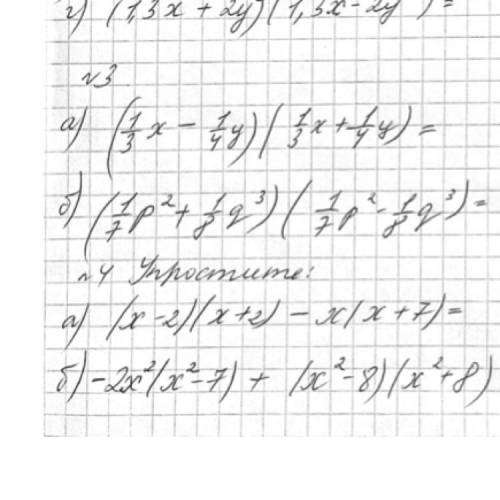 г) (1,3x + 2y)(1,3x - 2y) =
№3
а) (1/3 x - 1/4 y)(1/3 x + 1/4 y) =
б) (1/7 p² + 1/8 q³)(1/7 p² - 1/8 q³) =
№4 Упростите:
а) (x - 2)(x + 2) - x(x + 7) =
б) -2x²(x² - 7) + (x² - 8)(x² + 8)